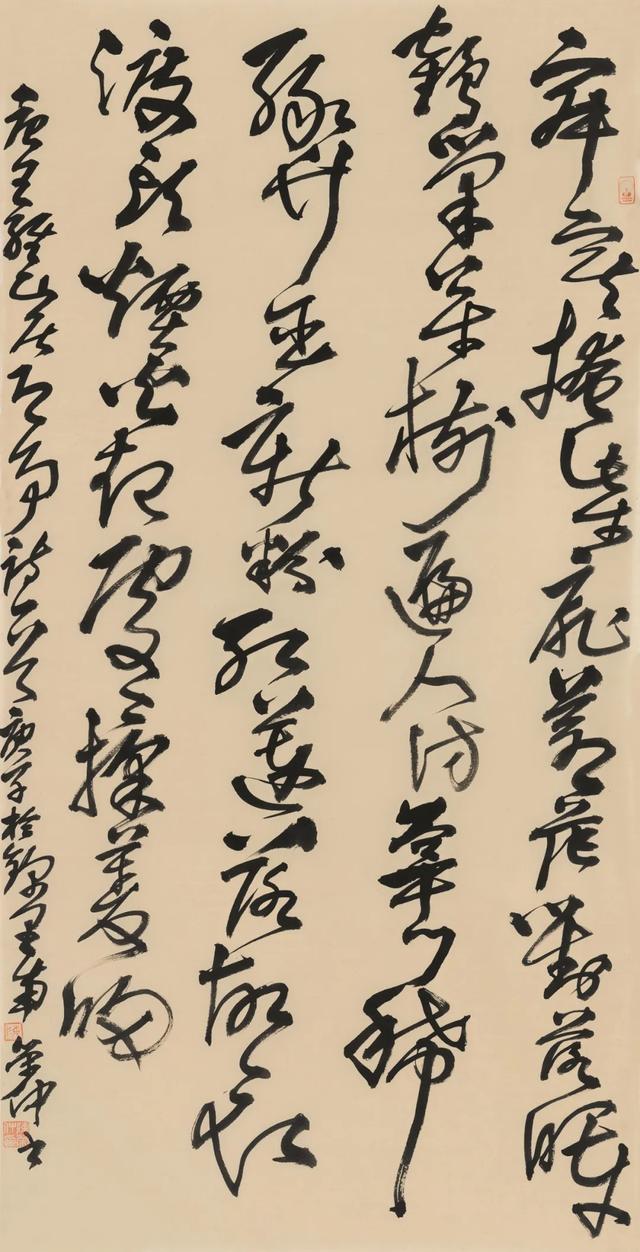 寂寞掩柴扉蒼茫對落暉
鶴巢松樹遍人訪蓽門稀
綠竹含新粉紅蓮落故衣
渡頭煙火起處々採菱歸
唐王維山居即事詩一首庚子於錦里